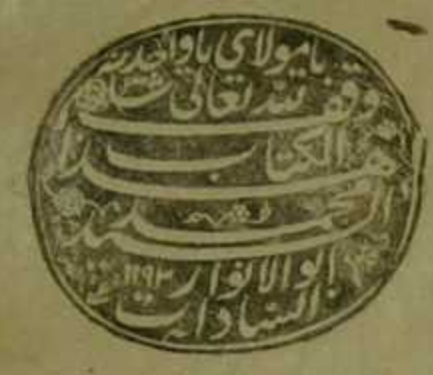 يا مولاي يا واحد
وقف لله تعالى
هذا الكتاب
السيد محمد
ابو الانوار ١٢٩٣
السادات